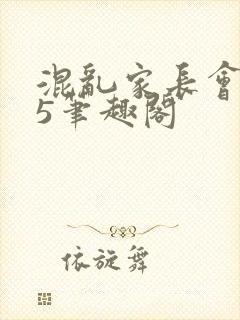 混亂家長會
5筆趣閣
依旋舞